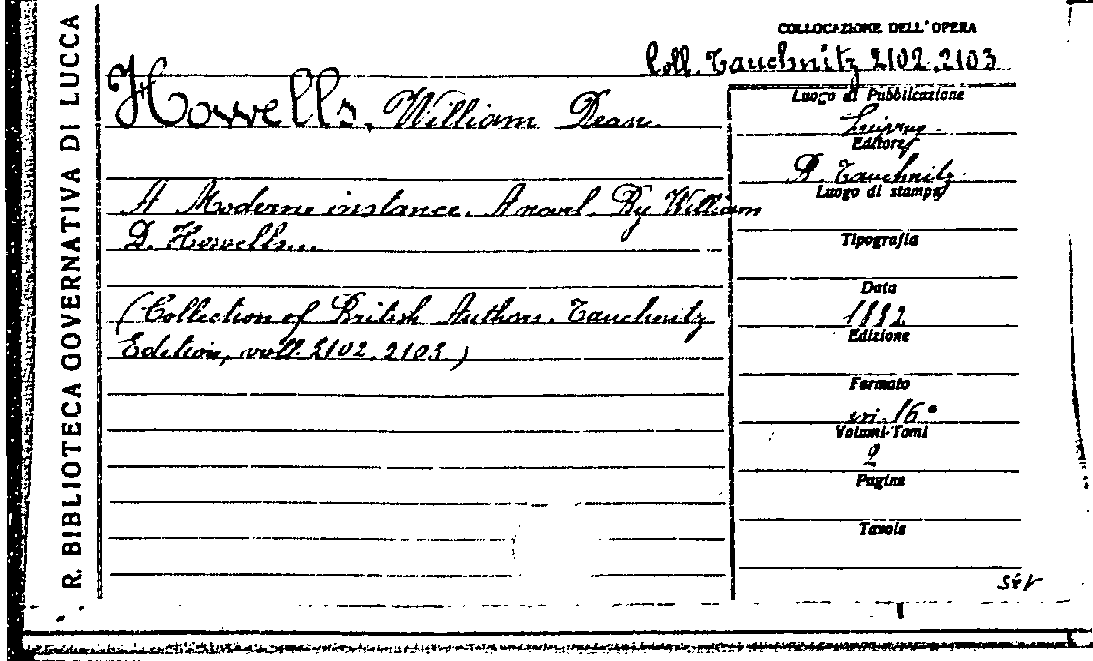 R. BIBLIOTECA GOVERNATIVA DI LUCCA
COLLOCAZIONE DELL'OPERA
Coll. Tauchnitz 2102.2103
Howells, William Dean.
A Moderne instance. A novel. By William
D. Howells...
(Collection of British Authors. Tauchnitz
Edition, voll. 2102. 2103.)
Luogo di Pubblicazione
Editore
B. Tauchnitz
Luogo di stampa
Tipografia
Data
1882
Edizione
Formato
in 16°
Volumi-Tomi
2
Pagine
Tavole